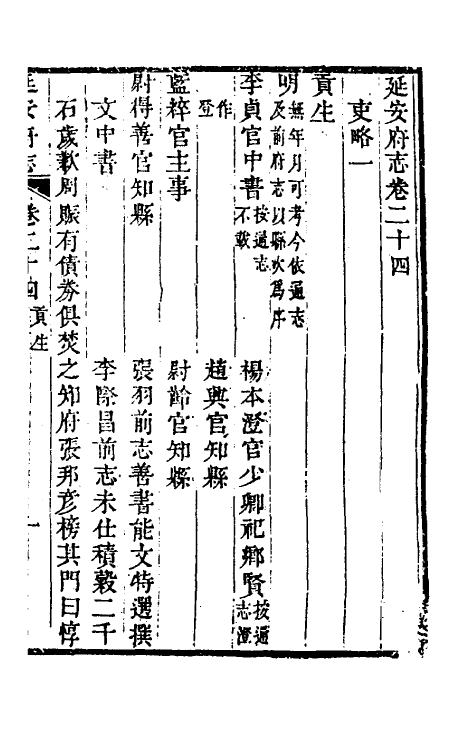 延安府志卷二十四
吏略一
貢生
明無年月可考今依通志
及前府志以縣次爲序
李貞官中書按通志
不載
楊本澄官少卿祀鄉賢按通
志澄
作
登
趙興官知縣
藍粹官主事
尉齡官知縣
尉得善官知縣
張羽前志善書能文特選撰
文中書
李際昌前志未仕積穀二千
石歲歉周賑有債券俱焚之知府張邦彥榜其門曰惇
延安府志
卷二十四
貢生
一